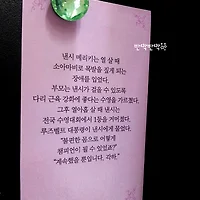 낸시 메리키는 열 살 때
소아마비로 목발을 짚게 되는
장애를 입었다.
부모는 낸시가 걸을 수 있도록
다리 근육 강화에 좋다는 수영을 가르쳤다.
그후 열아홉 살 때 낸시는
전국 수영대회에서 1등을 거머쥐었다.
루즈벨트 대통령이 낸시에게 물었다.
"불편한 몸으로 어떻게
챔피언이 될 수 있었죠?"
"계속했을 뿐입니다, 각하."